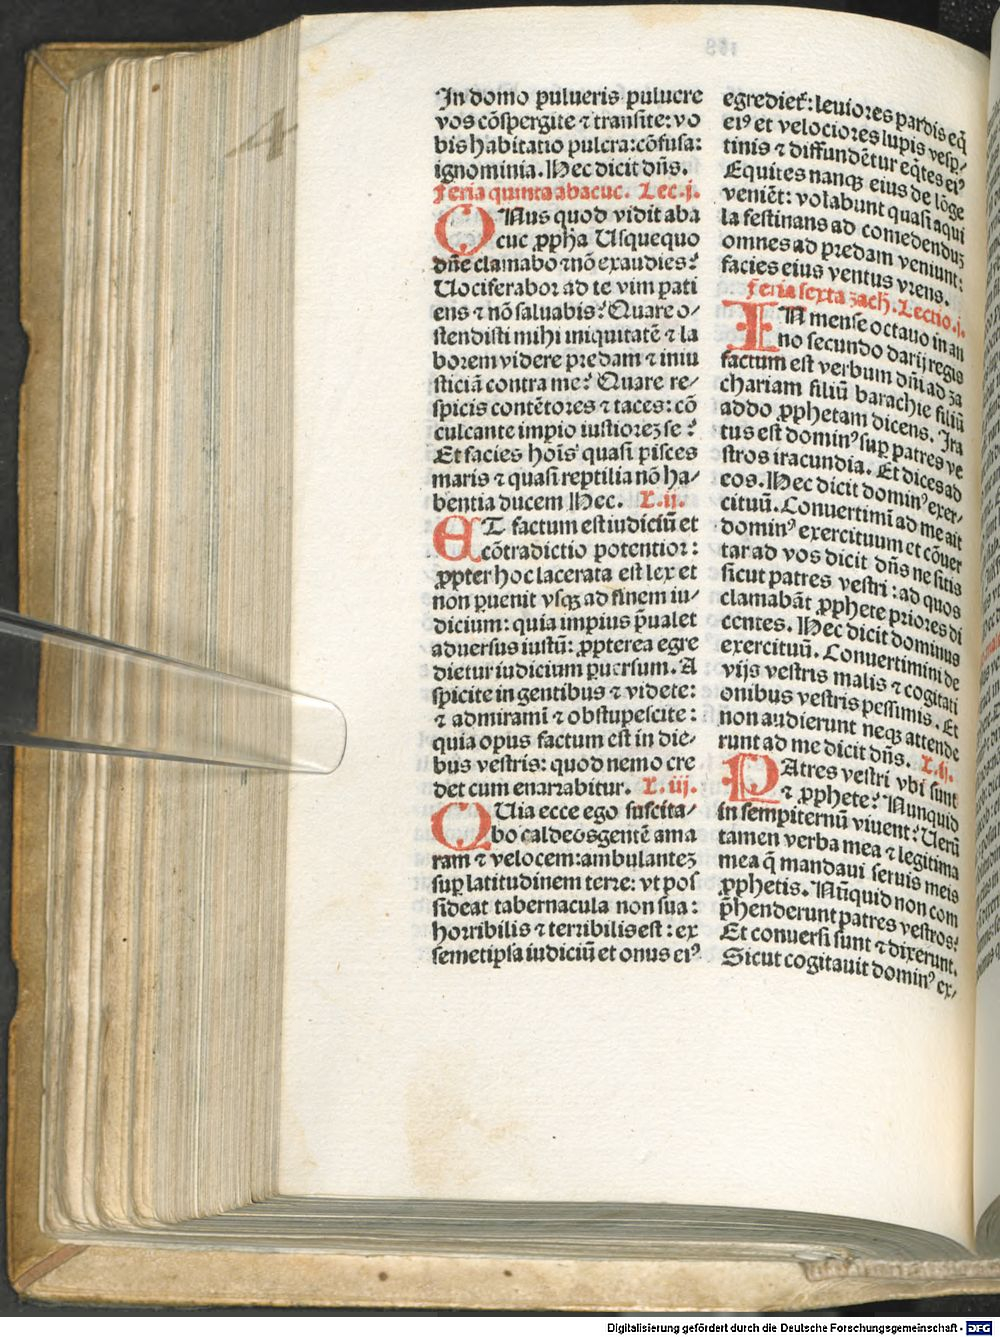 In domo pulueris puluere
vos cõspergite ⁊ transite: vo
bis habitatio pulcra: cõfusa:
ignominia. Hec dicit dñs.
Feria quinta abacuc. Lec. j.
ONus quod vidit aba
cuc ꝓpha Usquequo
dñe clamabo ⁊ nõ exaudies?
Uociferabor ad te vim pati
ens ⁊ nõ saluabis? Quare o⸗
stendisti mihi iniquitatẽ ⁊ la
borem videre predam ⁊ iniu
sticiã contra me? Quare re⸗
spicis contẽtores ⁊ taces: cõ
culcante impio iustiorez se?
Et facies hoĩs quasi pisces
maris ⁊ quasi reptilia nõ ha⸗
bentia ducem Hec. L. ij.
ET factum est iudiciũ et
cõtradictio potentior:
ꝓpter hoc lacerata est lex et
non ꝑuenit vsqꝫ ad finem iu⸗
dicium: quia impius p̃ualet
aduersus iustũ: ꝓpterea egre
dietur iudicium ꝑuersum. A
spicite in gentibus ⁊ videte:
⁊ admiramĩ ⁊ obstupescite:
quia opus factum est in die⸗
bus vestris: quod nemo cre
det cum enarrabitur. L. iij.
QUia ecce ego suscita⸗
bo caldeos gentẽ ama
ram ⁊ velocem: ambulantez
suꝑ latitudinem terre: vt pos
sideat tabernacula non sua:
horribilis ⁊ terribilis est: ex
semetipsa iudiciũ et onus eiꝰ
egrediet᷑: leuiores pardis eq̃
eiꝰ et velociores lupis vesꝑ⸗
tinis ⁊ diffundẽtur eq̃tes eiꝰ
Equites nanqꝫ eius de lõge
veniẽt: volabunt quasi aqui
la festinans ad comedenduz
omnes ad predam veniunt:
facies eius ventus vrens.
Feria sexta zach. Lectio. j.
IN mense octauo in an
no secundo darij regis
factum est verbum dñi ad za
chariam filiũ barachie filiũ
addo ꝓphetam dicens. Ira
tus est dominꝰ suꝑ patres ve
stros iracundia. Et dices ad
eos. Hec dicit dominꝰ exer⸗
cituũ. Conuertimĩ ad me ait
dominꝰ exercituum et cõuer
tar ad vos dicit dñs ne sitis
sicut patres vestri: ad quos
clamabãt ꝓphete priores di
centes. Hec dicit dominus
exercituũ. Conuertimini de
vijs vestris malis ⁊ cogitati
onibus vestris pessimis. Et
non audierunt neqꝫ attende
runt ad me dicit dñs. L. ij.
PAtres vestri vbi sunt
⁊ ꝓphete? Nunquid
in sempiternũ viuent? Uerũ
tamen verba mea ⁊ legitima
mea q̃ mandaui seruis meis
ꝓphetis. Nũquid non com
p̃henderunt patres vestros?
Et conuersi sunt ⁊ dixerunt.
Sicut cogitauit dominꝰ ex⸗
Digitalisierung gefördert durch die Deutsche Forschungsgemeinschaft - DFG